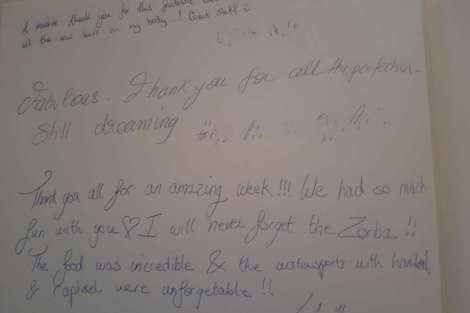 thank you for this fantastic
all the on my body...! Great staff
Fabulous. Thank you for all the perfection.
Still dreaming
Thank you all for an amazing week!!! We had so much
fun with you I will never forget the Zorba!!
The food was incredible & the watersports with
& Raphael were unforgetable!!